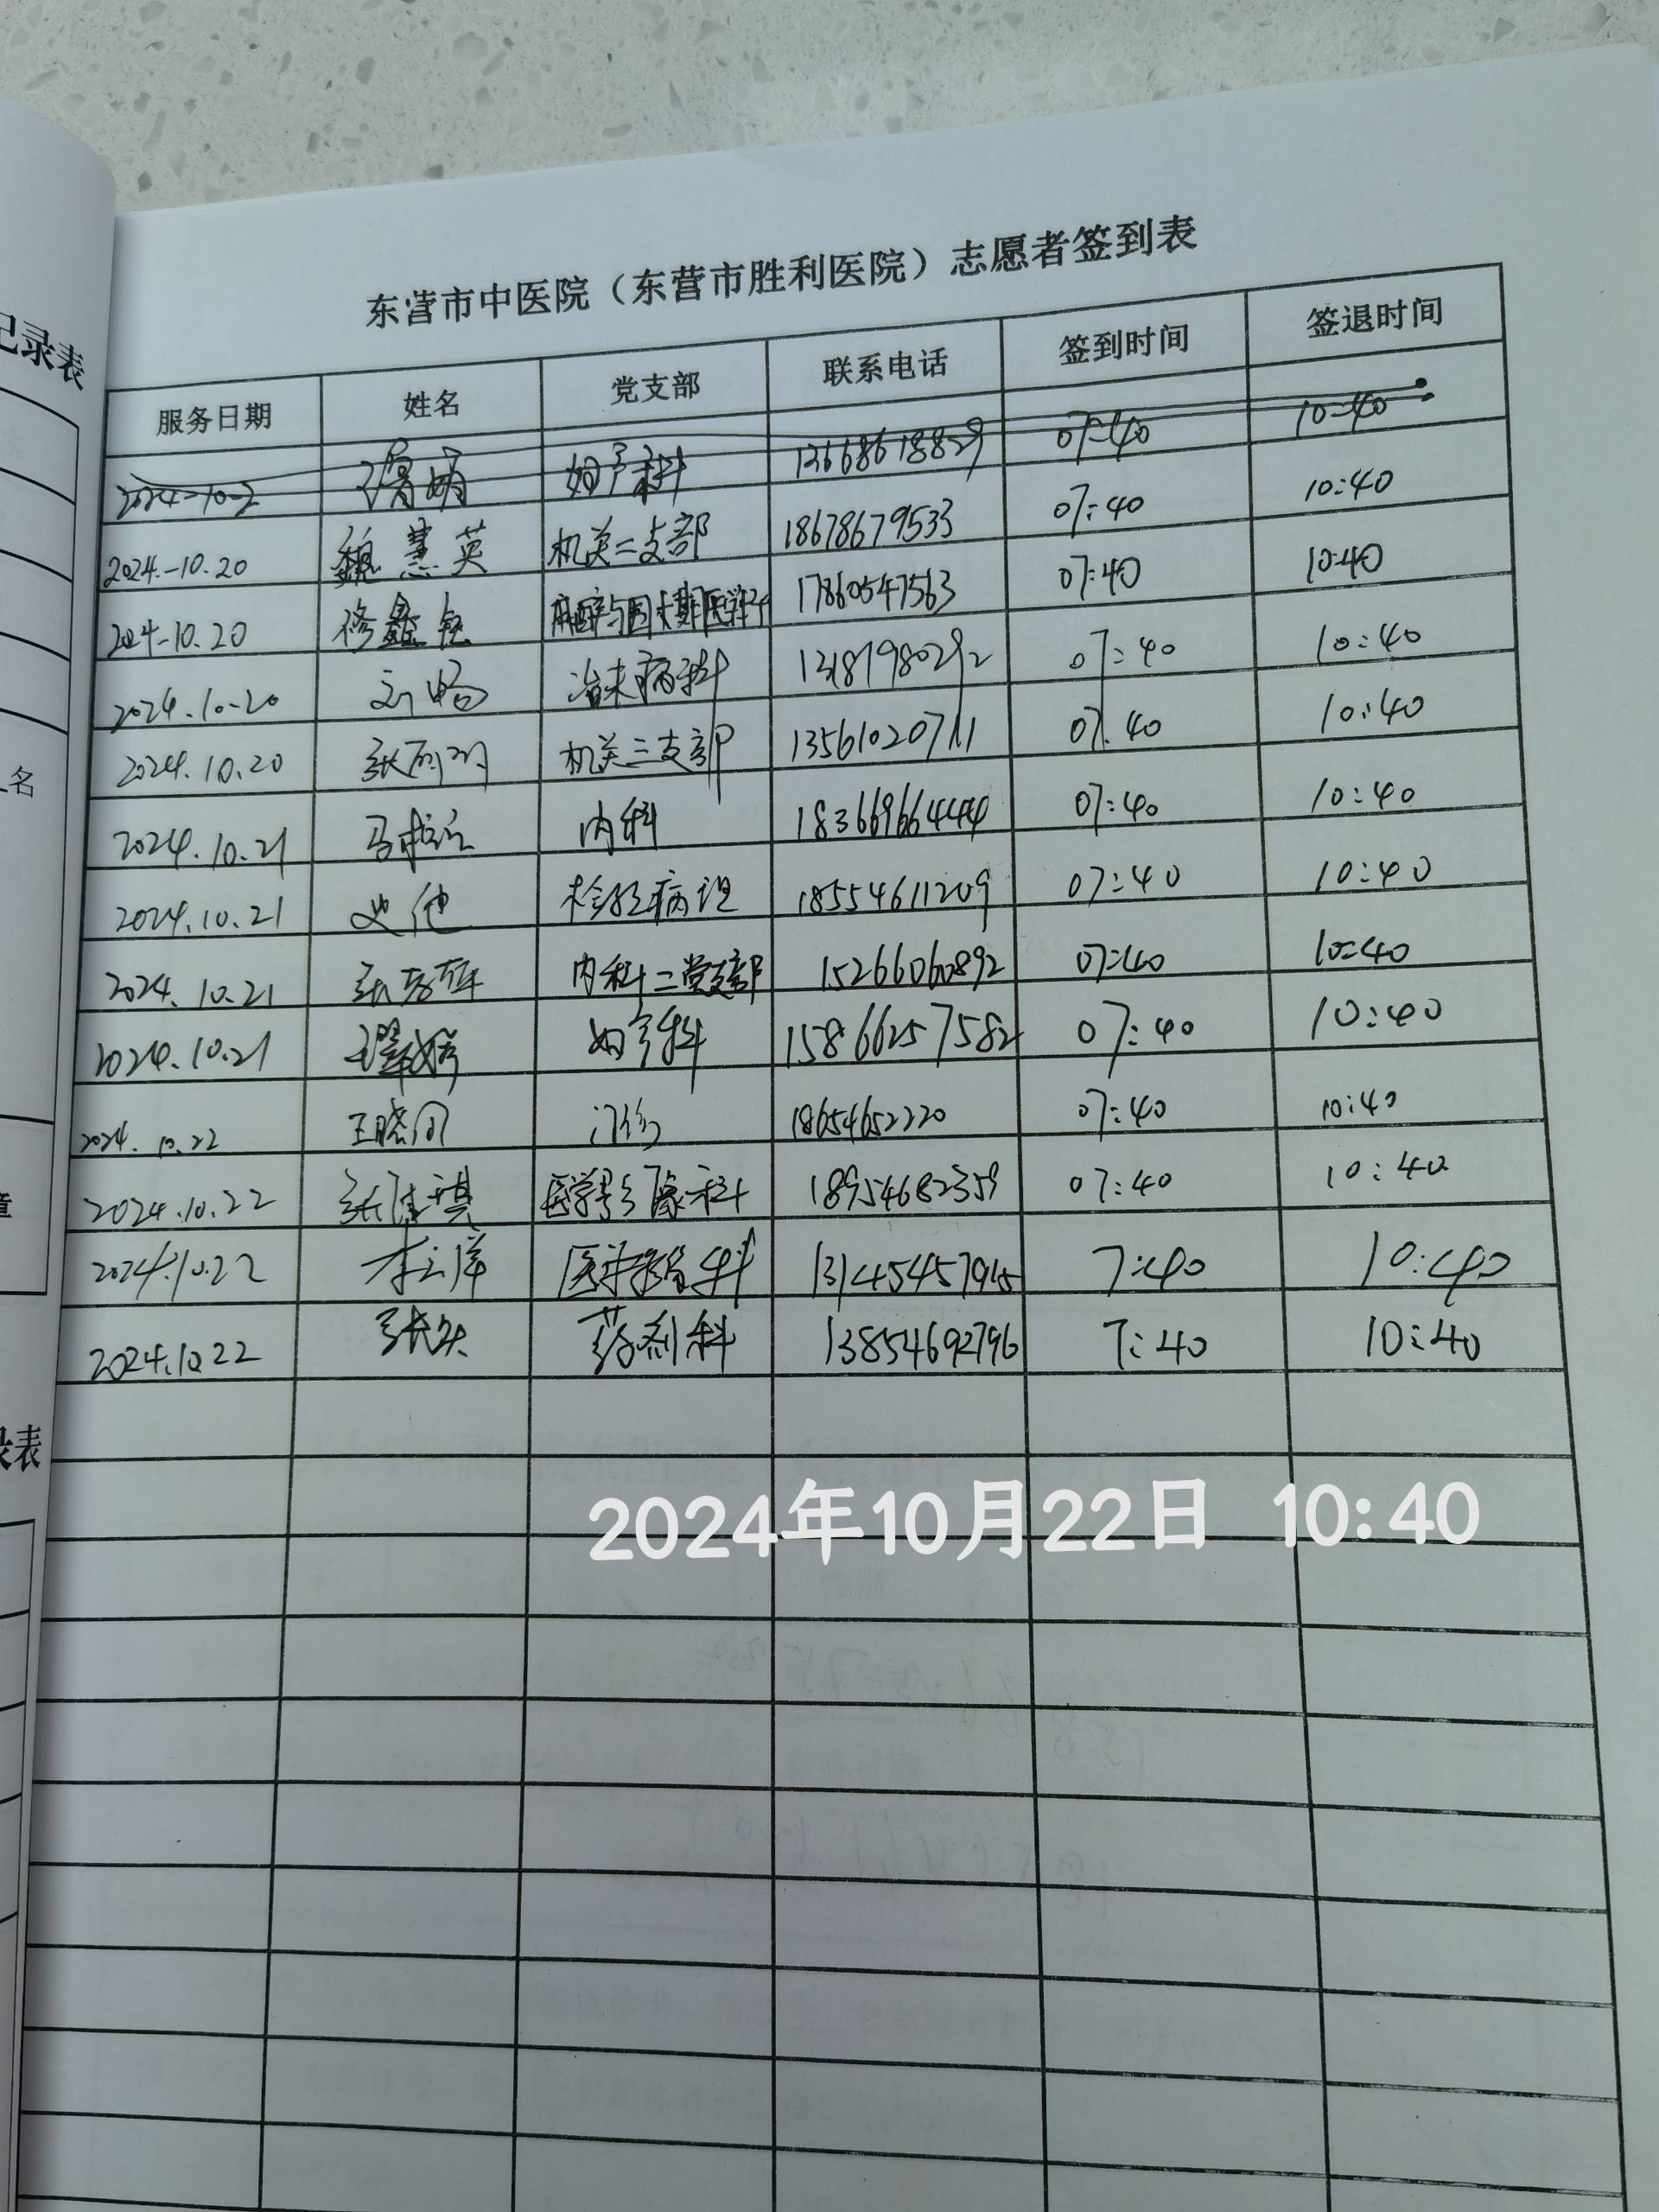 记录表
东营市中医院（东营市胜利医院）志愿者签到表
服务日期 姓名 党支部 联系电话 签到时间 签退时间
2024-10-2 妇产科 13668618829 07:40 10:40
2024.-10.20 魏慧英 机关二支部 18678679533 07:40 10:40
2024-10.20 修鑫 麻醉与围术期医学科 17860547563 07:40 10:40
2024.10-20 刘畅 治未病科 13187980292 07:40 10:40
2024.10.20 张 机关三支部 13561020711 07:40 10:40
2024.10.21 马 内科 18366966444 07:40 10:40
2024.10.21 史 检验病理 18554611209 07:40 10:40
2024.10.21 张 内科二党支部 15266060892 07:40 10:40
2024.10.21 妇产科 15866257582 07:40 10:40
2024.10.22 王晓 门诊 18654652220 07:40 10:40
2024.10.22 张佳琪 医学影像科 18954682359 07:40 10:40
2024.10.22 李 医学影像科 7:40 10:40
2024.10.22 张 药剂科 13854692796 7:40 10:40
名
录表
2024年10月22日 10:40